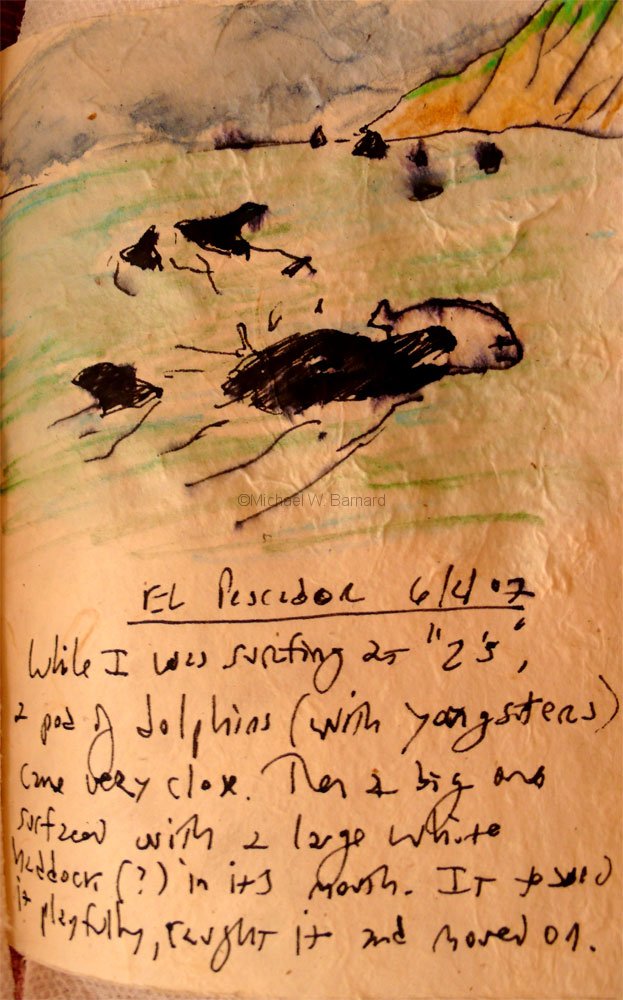 ©Michael W. Barnard
EL Pescador 6/4/07
While I was surfing at "Z's",
a pod of dolphins (with youngsters)
came very close. Then a big one
surfaced with a large white
haddock (?) in its mouth. It tossed
it playfully, caught it and moved on.